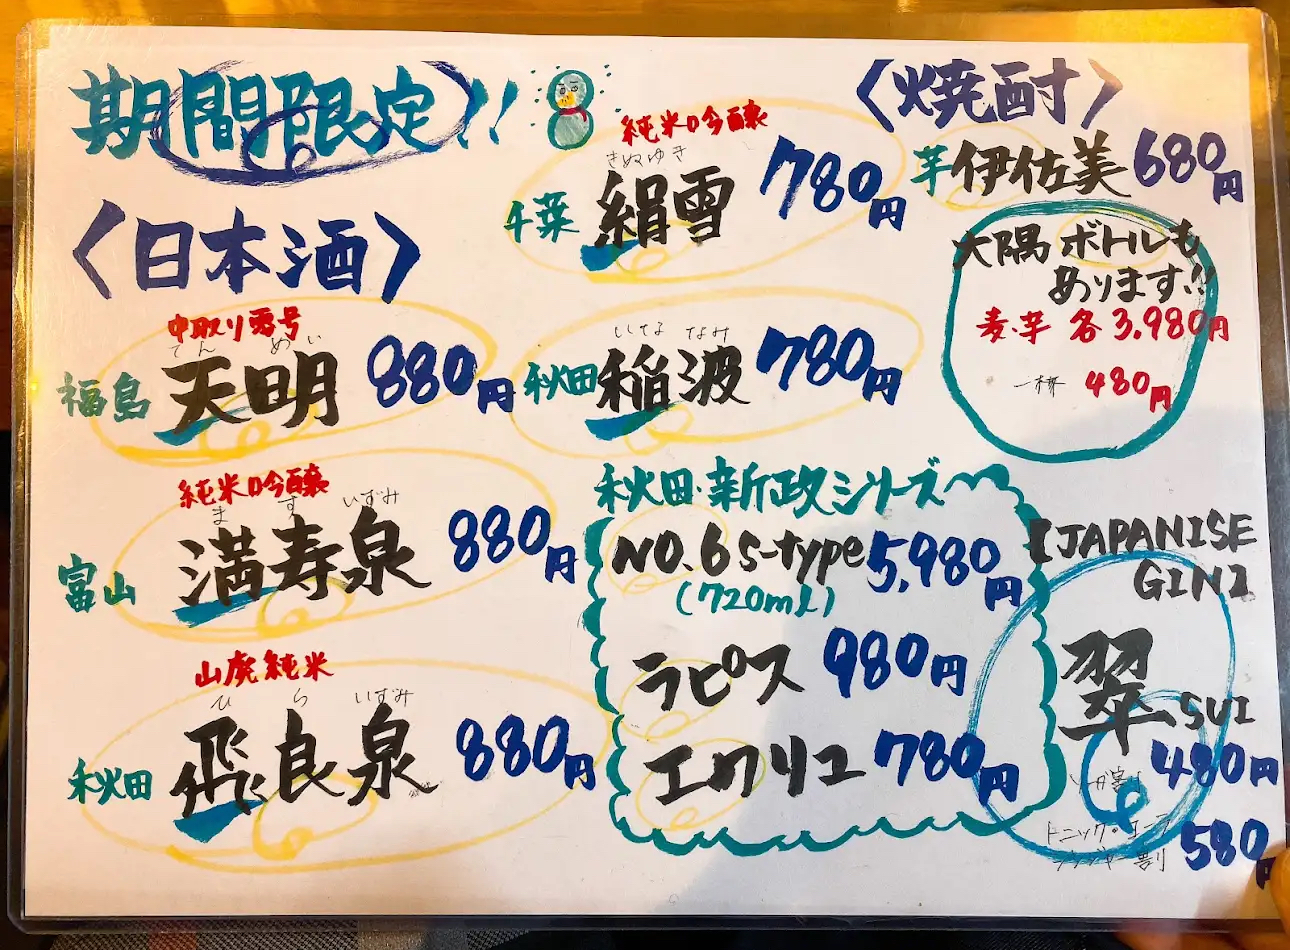 期間限定!!
〈日本酒〉
中取り零号
てんめい
福島 天明 880円
純米吟醸
ますいずみ
富山 満寿泉 880円
山廃純米
ひらいずみ
秋田 飛良泉 880円
純米吟醸
きぬゆき
千葉 絹雪 780円
いななみ
秋田 稲波 780円
秋田・新政シリーズ
NO.6 S-type 5,980円
(720ml)
ラピス 980円
エクリュ 780円
〈焼酎〉
芋 伊佐美 680円
大隅 ボトルも
あります!!
麦・芋 各 3,980円
一杯 480円
【JAPANISE
GIN】
翠、SUI
ソーダ割り 480円
トニック・コーラ
ジンジャー割 580円